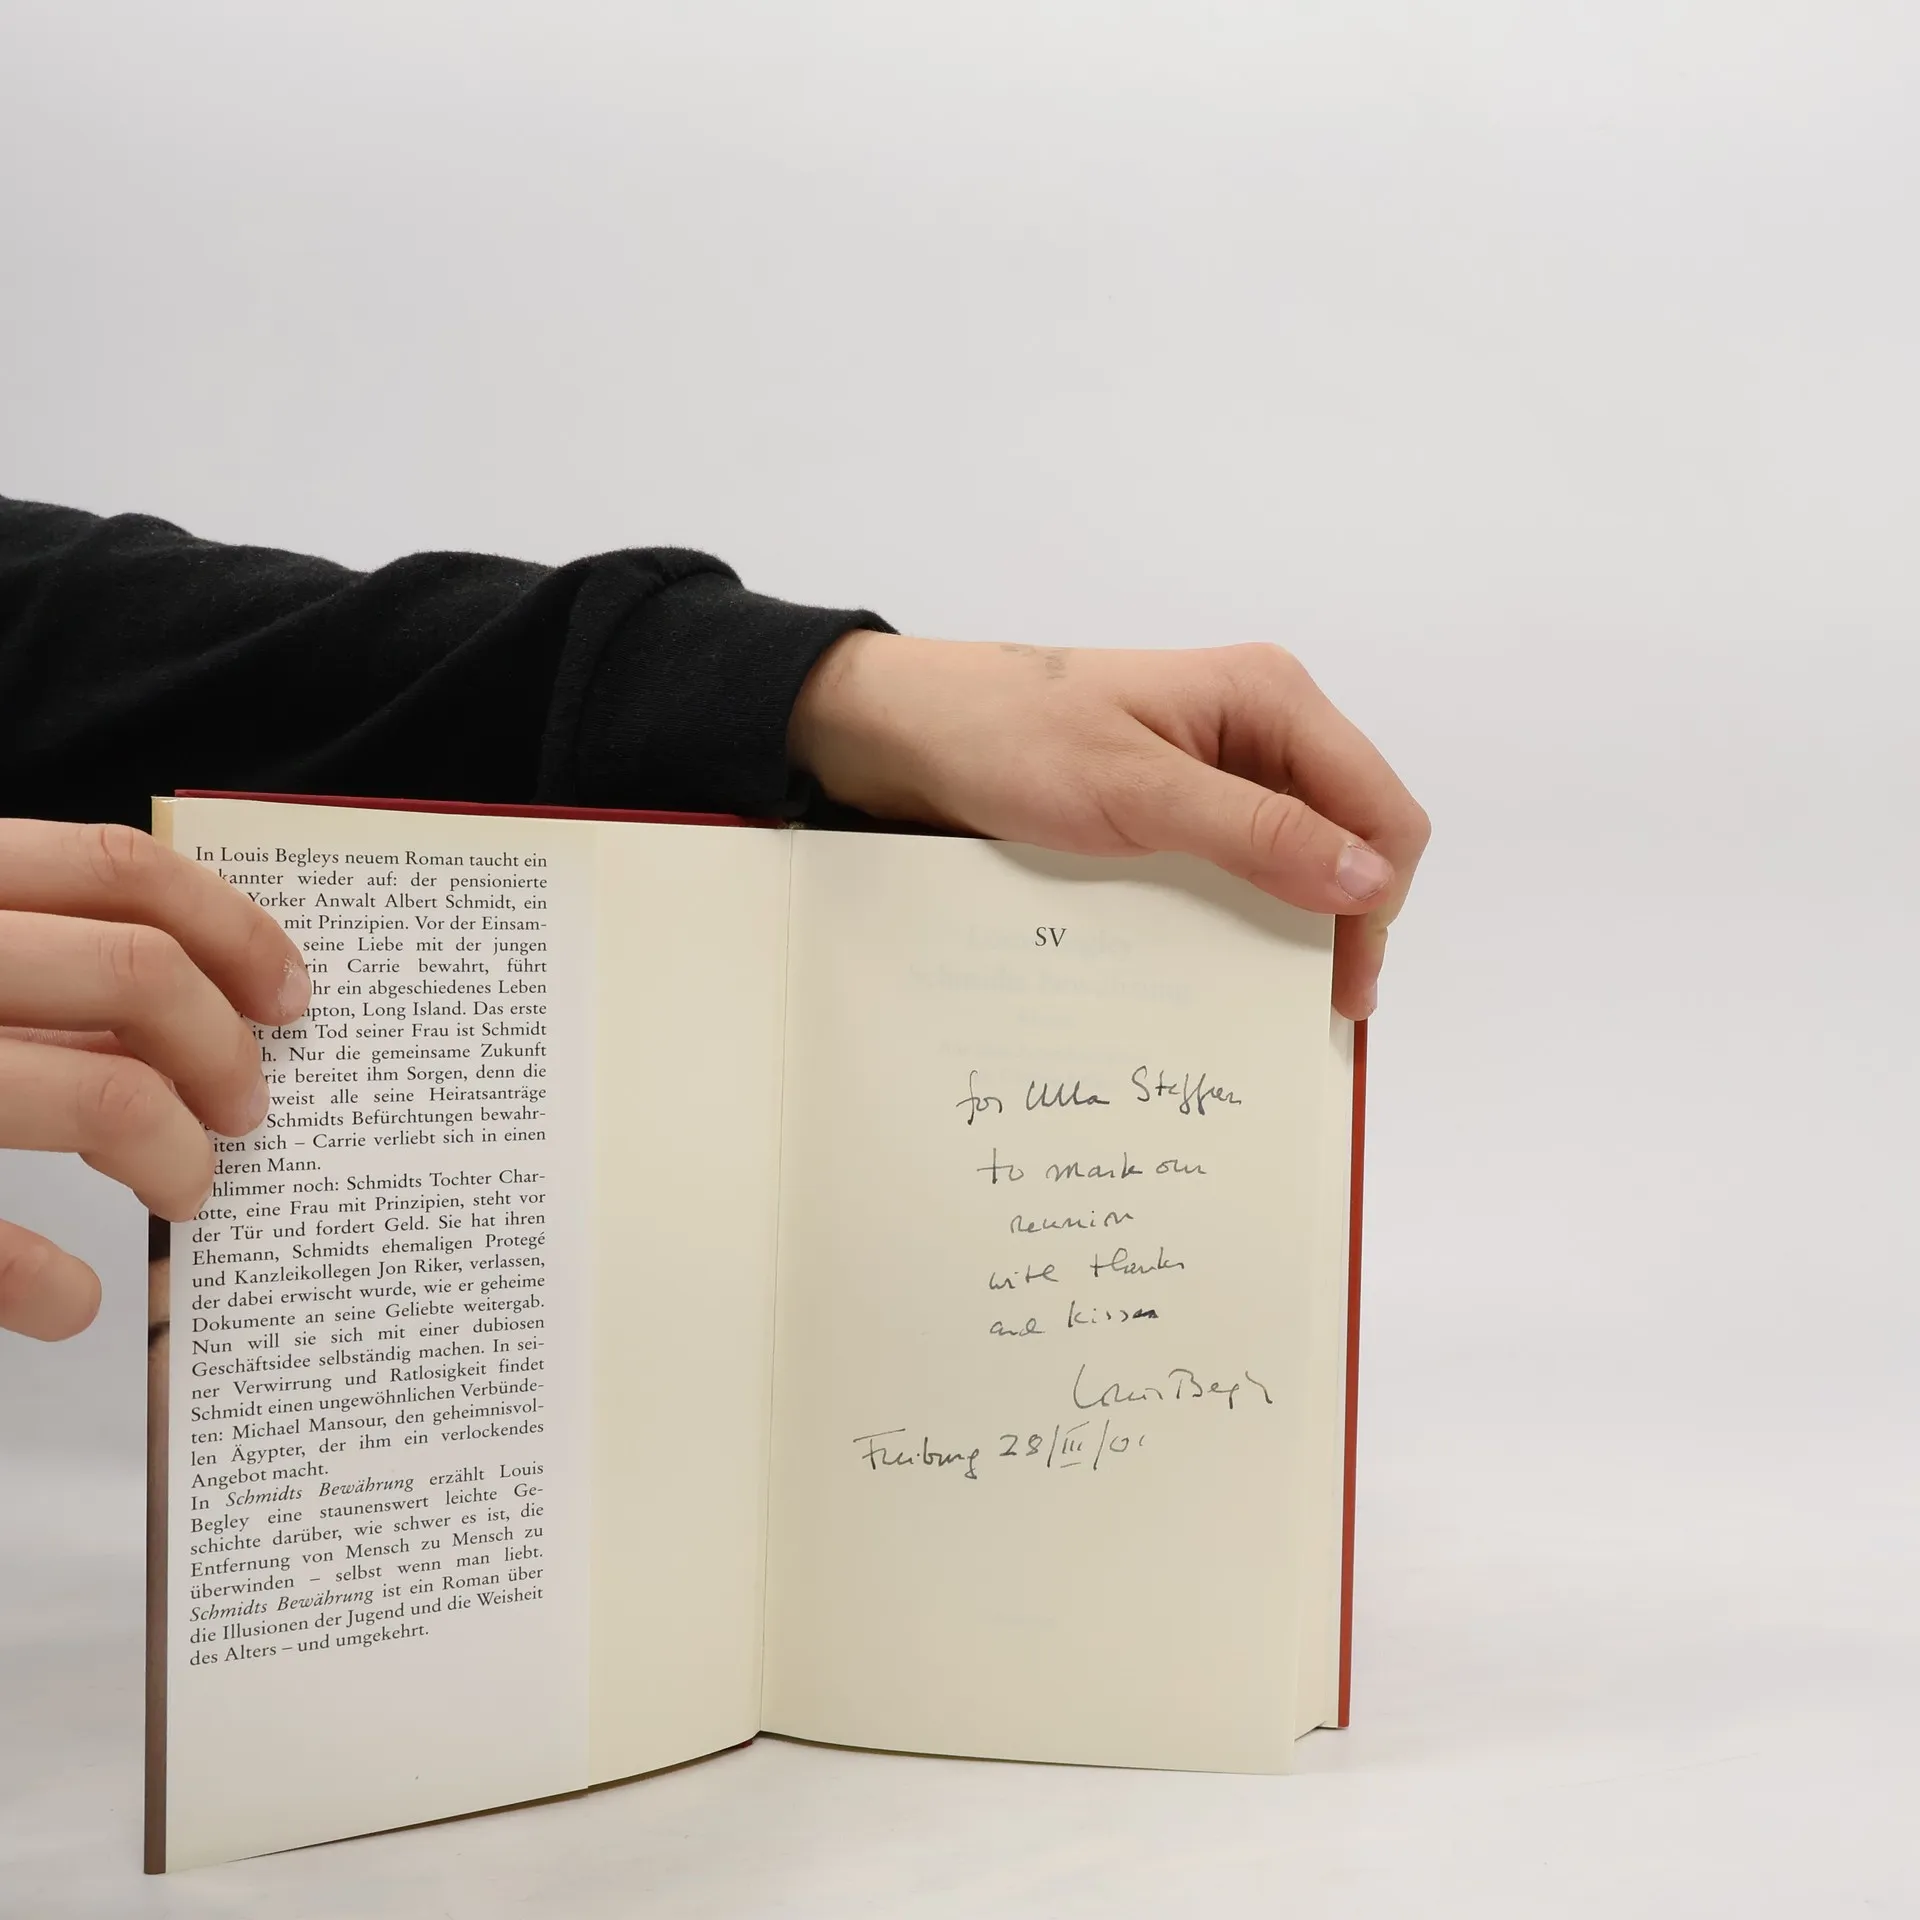 In Louis Begleys neuem Roman taucht ein
kannter wieder auf: der pensionierte
Yorker Anwalt Albert Schmidt, ein
mit Prinzipien. Vor der Einsam-
seine Liebe mit der jungen
rin Carrie bewahrt, führt
hr ein abgeschiedenes Leben
mpton, Long Island. Das erste
it dem Tod seiner Frau ist Schmidt
h. Nur die gemeinsame Zukunft
rie bereitet ihm Sorgen, denn die
weist alle seine Heiratsanträge
Schmidts Befürchtungen bewahr-
iten sich – Carrie verliebt sich in einen
deren Mann.
hlimmer noch: Schmidts Tochter Char-
lotte, eine Frau mit Prinzipien, steht vor
der Tür und fordert Geld. Sie hat ihren
Ehemann, Schmidts ehemaligen Protegé
und Kanzleikollegen Jon Riker, verlassen,
der dabei erwischt wurde, wie er geheime
Dokumente an seine Geliebte weitergab.
Nun will sie sich mit einer dubiosen
Geschäftsidee selbständig machen. In sei-
ner Verwirrung und Ratlosigkeit findet
Schmidt einen ungewöhnlichen Verbünde-
ten: Michael Mansour, den geheimnisvol-
len Ägypter, der ihm ein verlockendes
Angebot macht.
In Schmidts Bewährung erzählt Louis
Begley eine staunenswert leichte Ge-
schichte darüber, wie schwer es ist, die
Entfernung von Mensch zu Mensch zu
überwinden – selbst wenn man liebt.
Schmidts Bewährung ist ein Roman über
die Illusionen der Jugend und die Weisheit
des Alters – und umgekehrt.
SV
for Ulla Steffen
to mark our
reunion
with thanks
and kisses
Louis Begley
Freiburg 28/III/01